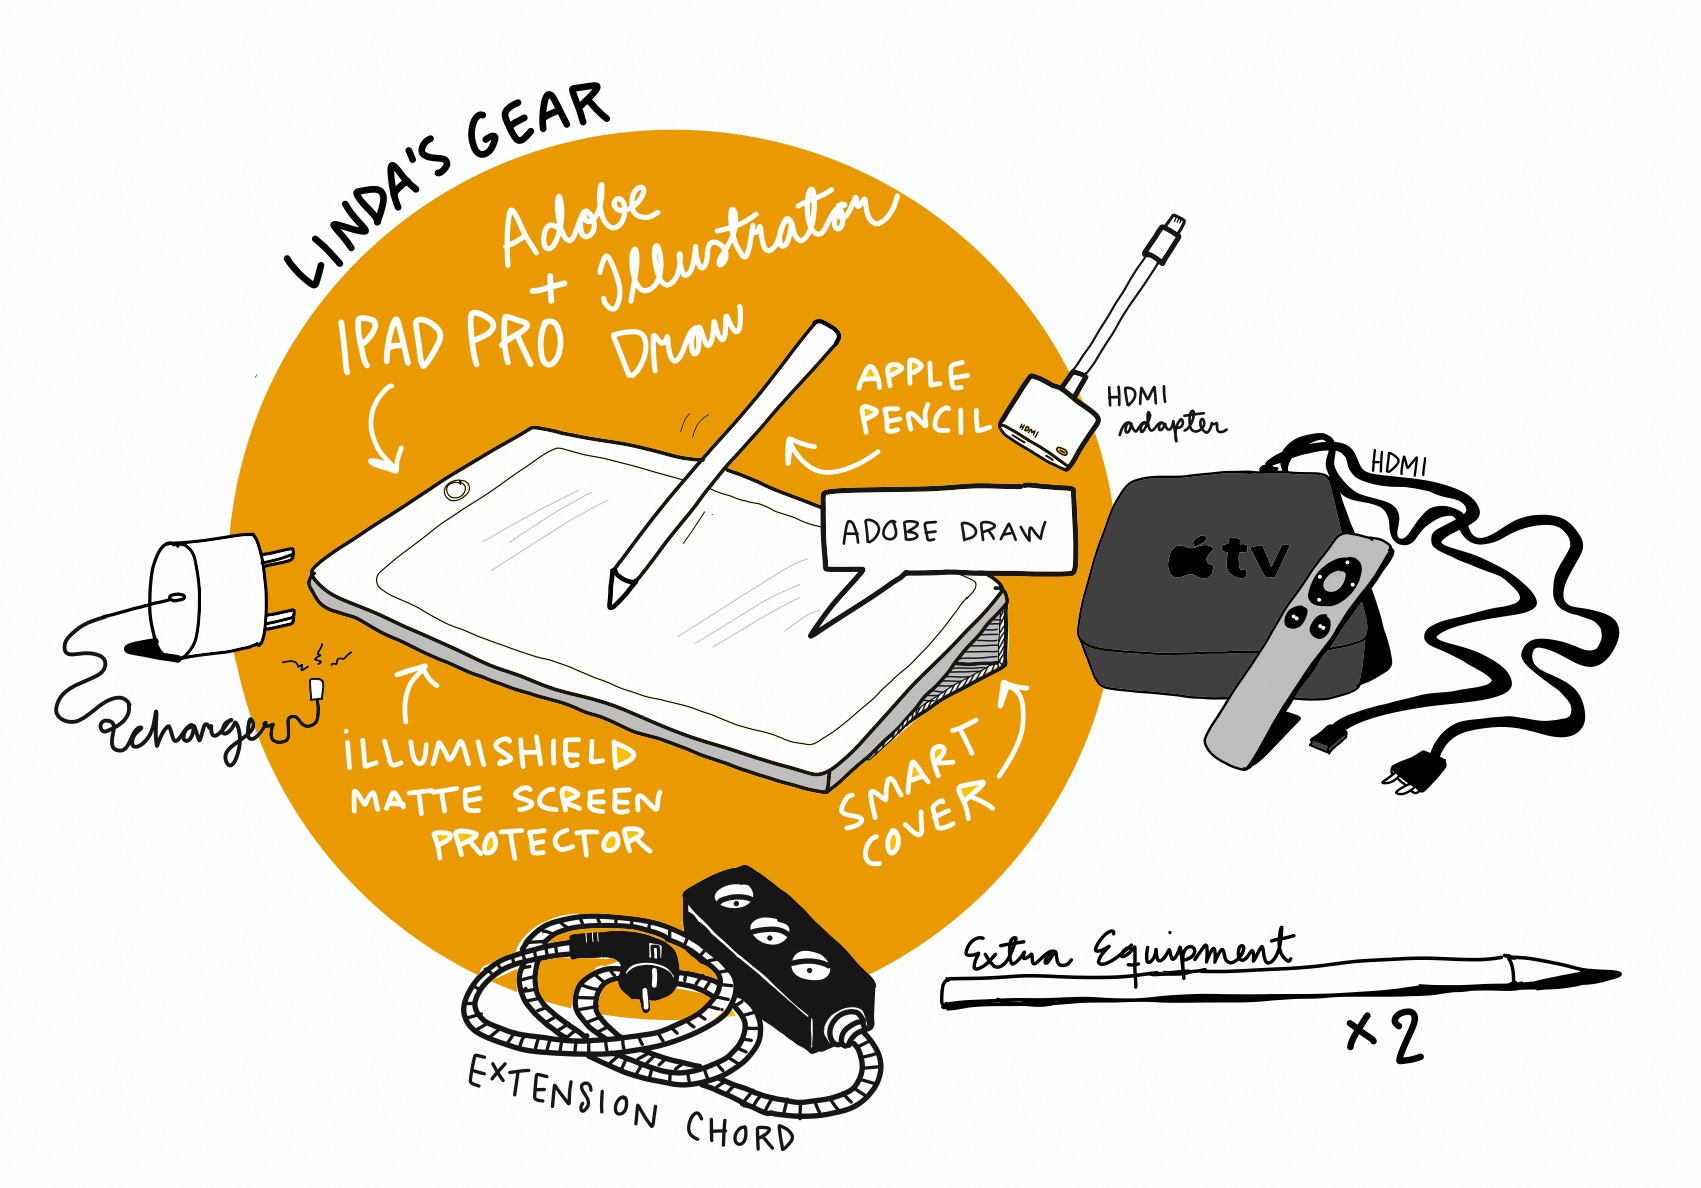 LINDA'S GEAR
Adobe
+ Illustrator
IPAD PRO Draw
APPLE
PENCIL
HDMI
HDMI
adapter
HDMI
ADOBE DRAW
tv
charger
ILLUMISHIELD
MATTE SCREEN
PROTECTOR
SMART
COVER
Extra Equipment
x 2
EXTENSION CHORD